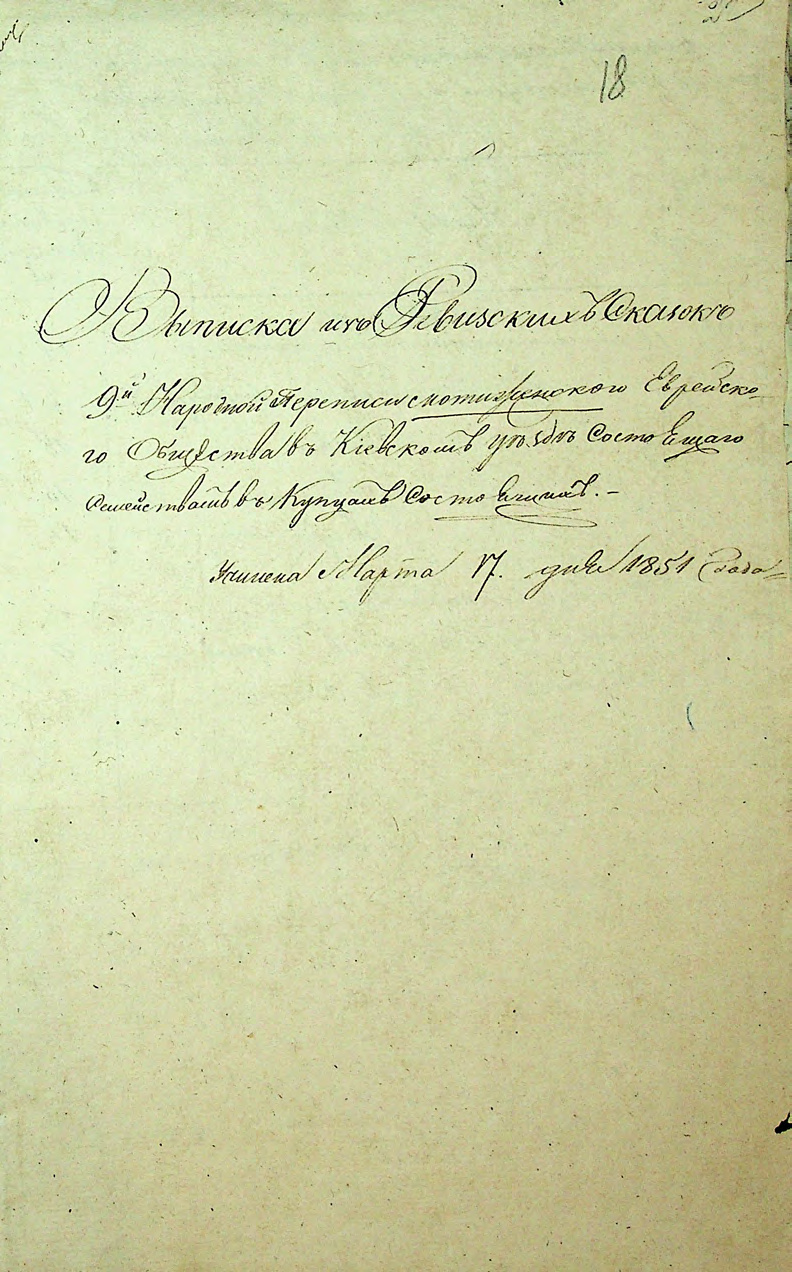 18
Выписка изъ Ревизскихъ Сказокъ
9й Народной Переписи смотиженского Еврейско-
го Общества въ Кіевскомъ уѣздѣ Состоѣщаго
Семействамъ въ Купцахъ Состоѣщихъ. –
Учинена Марта 17. дня 1851 Года